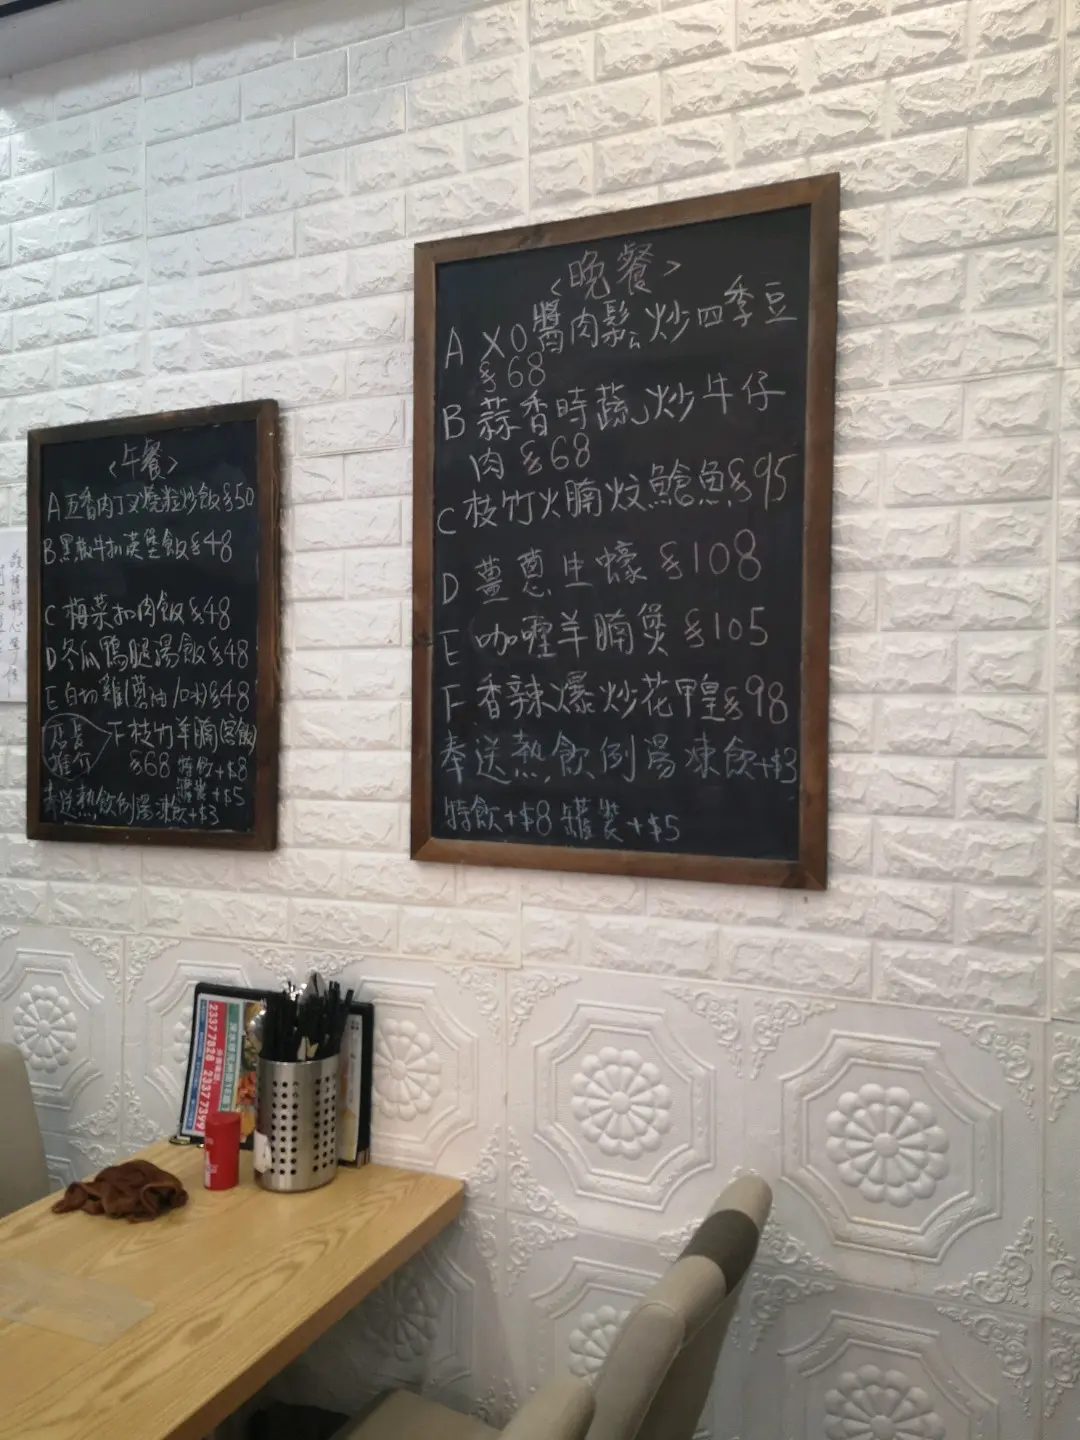 <午餐>
A 五香肉丁叉燒粒炒飯$50
B 黑椒牛扒漢堡飯$48
C 梅菜扣肉飯$48
D 冬瓜鴨腿湯飯$48
E 白切雞(薑油/口水)$48
店長
推介
F 枝竹羊腩(窩飯)
$68 特飲+$8
罐裝+$5
奉送熱飲例湯凍飲+$3
<晚餐>
A XO醬肉鬆炒四季豆
$68
B 蒜香時蔬炒牛仔
肉 $68
C 枝竹火腩炆鱠魚$95
D 薑蔥生蠔 $108
E 咖喱羊腩煲 $105
F 香辣爆炒花甲皇$98
奉送熱飲例湯凍飲+$3
特飲+$8 罐裝+$5
2337 7828 2337 7399